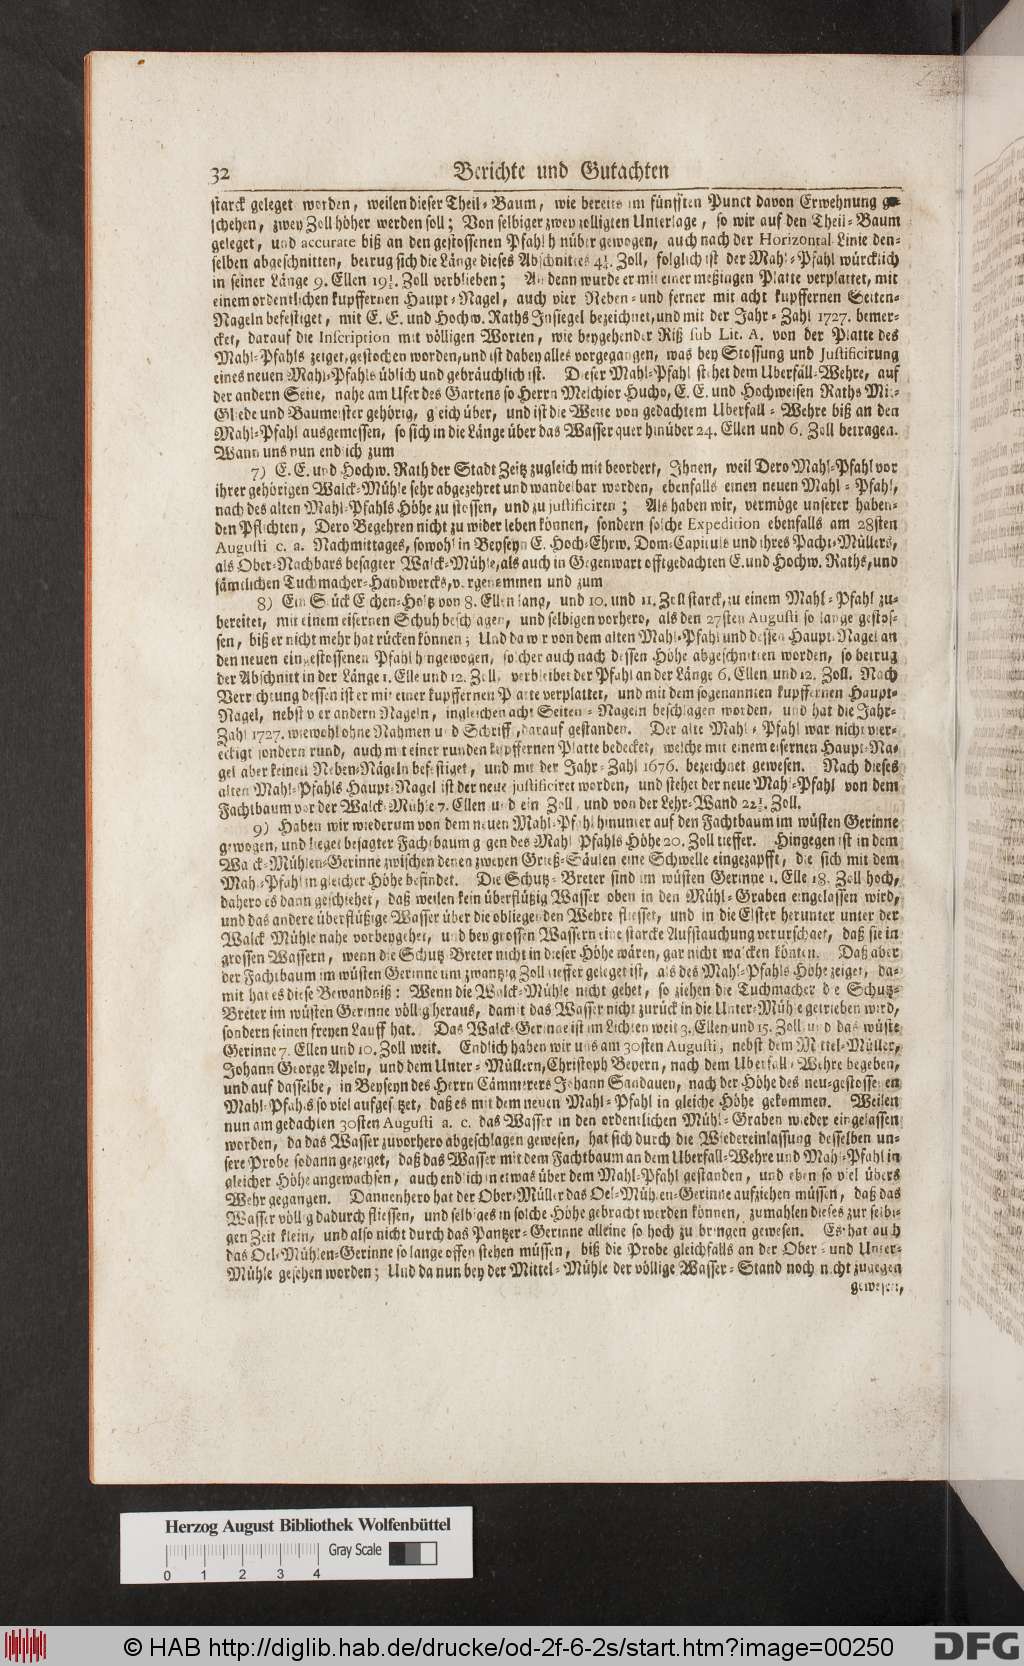 32 Berichte und Gutachten
starck geleget worden, weilen dieser Theil-Baum, wie bereits im fünfften Punct davon Erwehnung ge-
schehen, zwey Zoll höher werden soll; Von selbiger zwey zolligten Unterlage, so wir auf den Theil-Baum
geleget, und accurate biß an den gestossenen Pfahl hinüber gewogen, auch nach der Horizontal-Linie den-
selben abgeschnitten, betrug sich die Länge dieses Abschnittes Zoll, folglich ist der Mahl-Pfahl würcklich
in seiner Länge 9. Ellen Zoll verblieben; Alsdenn wurde er mit einer meßingen Platte verplattet, mit
einem ordentlichen kupffernen Haupt-Nagel, auch vier Neben- und ferner mit acht kupffernen Seiten-
Nageln befestiget, mit E. E. und Hochw. Raths Insiegel bezeichnet, und mit der Jahr-Zahl 1727. bemer-
cket, darauf die Inscription mit völligen Worten, wie beygehender Riß sub Lit. A. von der Platte des
Mahl-Pfahls zeiget, gestochen worden, und ist dabey alles vorgegangen, was bey Stossung und Justificirung
eines neuen Mahl-Pfahls üblich und gebräuchlich ist. Dieser Mahl-Pfahl stehet dem Uberfall-Wehre, auf
der andern Seite, nahe am Ufer des Gartens so Herrn Melchior Hucho, E. E. und Hochweisen Raths Mit-
Gliede und Baumeister gehörig, gleich über, und ist die Weite von gedachtem Uberfall-Wehre biß an den
Mahl-Pfahl ausgemessen, so sich in die Länge über das Wasser quer hinüber 24. Ellen und 6. Zoll betragen.
Wann uns nun endlich zum
7) E. E. und Hochw. Rath der Stadt Zeitz zugleich mit beordert, Ihnen, weil Dero Mahl-Pfahl vor
ihrer gehörigen Walck-Mühle sehr abgezehret und wandelbar worden, ebenfalls einen neuen Mahl-Pfahl,
nach des alten Mahl-Pfahls Höhe zu stossen, und zu justificiren; Als haben wir, vermöge unserer haben-
den Pflichten, Dero Begehren nicht zu wider leben können, sondern solche Expedition ebenfalls am 28sten
Augusti c. a. Nachmittages, sowohl in Beyseyn E. Hoch-Ehrw. Dom-Capituls und ihres Pacht-Müllers,
als Ober-Nachbars besagter Walck-Mühle, als auch in Gegenwart offtgedachten E. und Hochw. Raths, und
sämtlichen Tuchmacher-Handwercks, vorgenommen und zum
8) Ein Stück Eichen-Holtz von 8. Ellen lang, und 10. und 11. Zoll starck, zu einem Mahl-Pfahl zu-
bereitet, mit einem eisernen Schuh beschlagen, und selbigen vorhero, als den 27sten Augusti so lange gestos-
sen, biß er nicht mehr hat rücken können; Und da wir von dem alten Mahl-Pfahl und dessen Haupt-Nagel an
den neuen eingestossenen Pfahl hingewogen, solcher auch nach dessen Höhe abgeschnitten worden, so betrug
der Abschnitt in der Länge 1. Elle und 12. Zoll, verbleibet der Pfahl an der Länge 6. Ellen und 12. Zoll. Nach
Verrichtung dessen ist er mit einer kupffernen Platte verplattet, und mit dem sogenannten kupffernen Haupt-
Nagel, nebst vier andern Nageln, ingleichen acht Seiten-Nageln beschlagen worden, und hat die Jahr-
Zahl 1727. wiewohl ohne Nahmen und Schrifft, darauf gestanden. Der alte Mahl-Pfahl war nicht vier-
eckigt sondern rund, auch mit einer runden kupffernen Platte bedecket, welche mit einem eisernen Haupt-Na-
gel aber keinen Neben-Nägeln befestiget, und mit der Jahr-Zahl 1676. bezeichnet gewesen. Nach dieses
alten Mahl-Pfahls Haupt-Nagel ist der neue justificiret worden, und stehet der neue Mahl-Pfahl von dem
Fachtbaum vor der Walck-Mühle 7. Ellen und ein Zoll, und von der Lehr-Wand Zoll.
9) Haben wir wiederum von dem neuen Mahl-Pfahl hinunter auf den Fachtbaum im wüsten Gerinne
gewogen, und lieget besagter Fachtbaum gegen des Mahl-Pfahls Höhe 20. Zoll tieffer. Hingegen ist in dem
Walck-Mühlen-Gerinne zwischen denen zweyen Grieß-Säulen eine Schwelle eingezapfft, die sich mit dem
Mahl-Pfahl in gleicher Höhe befindet. Die Schutz-Breter sind im wüsten Gerinne 1. Elle 18. Zoll hoch,
dahero es dann geschiehet, daß weilen kein überflüßig Wasser oben in den Mühl-Graben eingelassen wird,
und das andere überflüßige Wasser über die obliegenden Wehre fliesset, und in die Elster herunter unter der
Walck-Mühle nahe vorbeygehet, und bey grossen Wassern eine starcke Aufstauchung verurschaet, daß sie in
grossen Wassern, wenn die Schutz-Breter nicht in dieser Höhe wären, gar nicht walcken könten. Daß aber
der Fachtbaum im wüsten Gerinne um zwantzig Zoll tieffer geleget ist, als des Mahl-Pfahls Höhe zeiget, da-
mit hat es diese Bewandniß: Wenn die Walck-Mühle nicht gehet, so ziehen die Tuchmacher die Schutz-
Breter im wüsten Gerinne völlig heraus, damit das Wasser nicht zurück in die Unter-Mühle getrieben werd,
sondern seinen freyen Lauff hat. Das Walck-Gerinne ist im Lichten weit 3. Ellen und 15. Zoll und das wüste
Gerinne 7. Ellen und 10. Zoll weit. Endlich haben wir uns am 30sten Augusti, nebst dem Mittel-Müller,
Johann George Apeln, und dem Unter-Müllern, Christoph Beyern, nach dem Uberfall-Wehre begeben,
und auf dasselbe, in Beyseyn des Herrn Cämmerers Johann Sandauen, nach der Höhe des neu-gestossenen
Mahl-Pfahls so viel aufgesetzet, daß es mit dem neuen Mahl-Pfahl in gleiche Höhe gekommen. Weilen
nun am gedachten 30sten Augusti a. c. das Wasser in den ordentlichen Mühl-Graben wieder eingelassen
worden, da das Wasser zuvorhero abgeschlagen gewesen, hat sich durch die Wiedereinlassung desselben un-
sere Probe sodann gezeiget, daß das Wasser mit dem Fachtbaum an dem Uberfall-Wehre und Mahl-Pfahl in
gleicher Höhe angewachsen, auch endlich in etwas über dem Mahl-Pfahl gestanden, und eben so viel übers
Wehr gegangen. Dannenhero hat der Ober-Müller das Oel-Mühlen-Gerinne aufziehen müssen, daß das
Wasser völlig dadurch fliessen, und selbiges in solche Höhe gebracht werden können, zumahlen dieses zur selbi-
gen Zeit klein, und also nicht durch das Pantzer-Gerinne alleine so hoch zu bringen gewesen. Es hat auch
das Oel-Mühlen-Gerinne so lange offen stehen müssen, biß die Probe gleichfalls an der Ober- und Unter-
Mühle gesehen worden; Und da nun bey der Mittel-Mühle der völlige Wasser-Stand noch nicht zugegen
gewesen,
Herzog August Bibliothek Wolfenbüttel
Gray Scale
0 1 2 3 4
© HAB http://diglib.hab.de/drucke/od-2f-6-2s/start.htm?image=00250
DFG